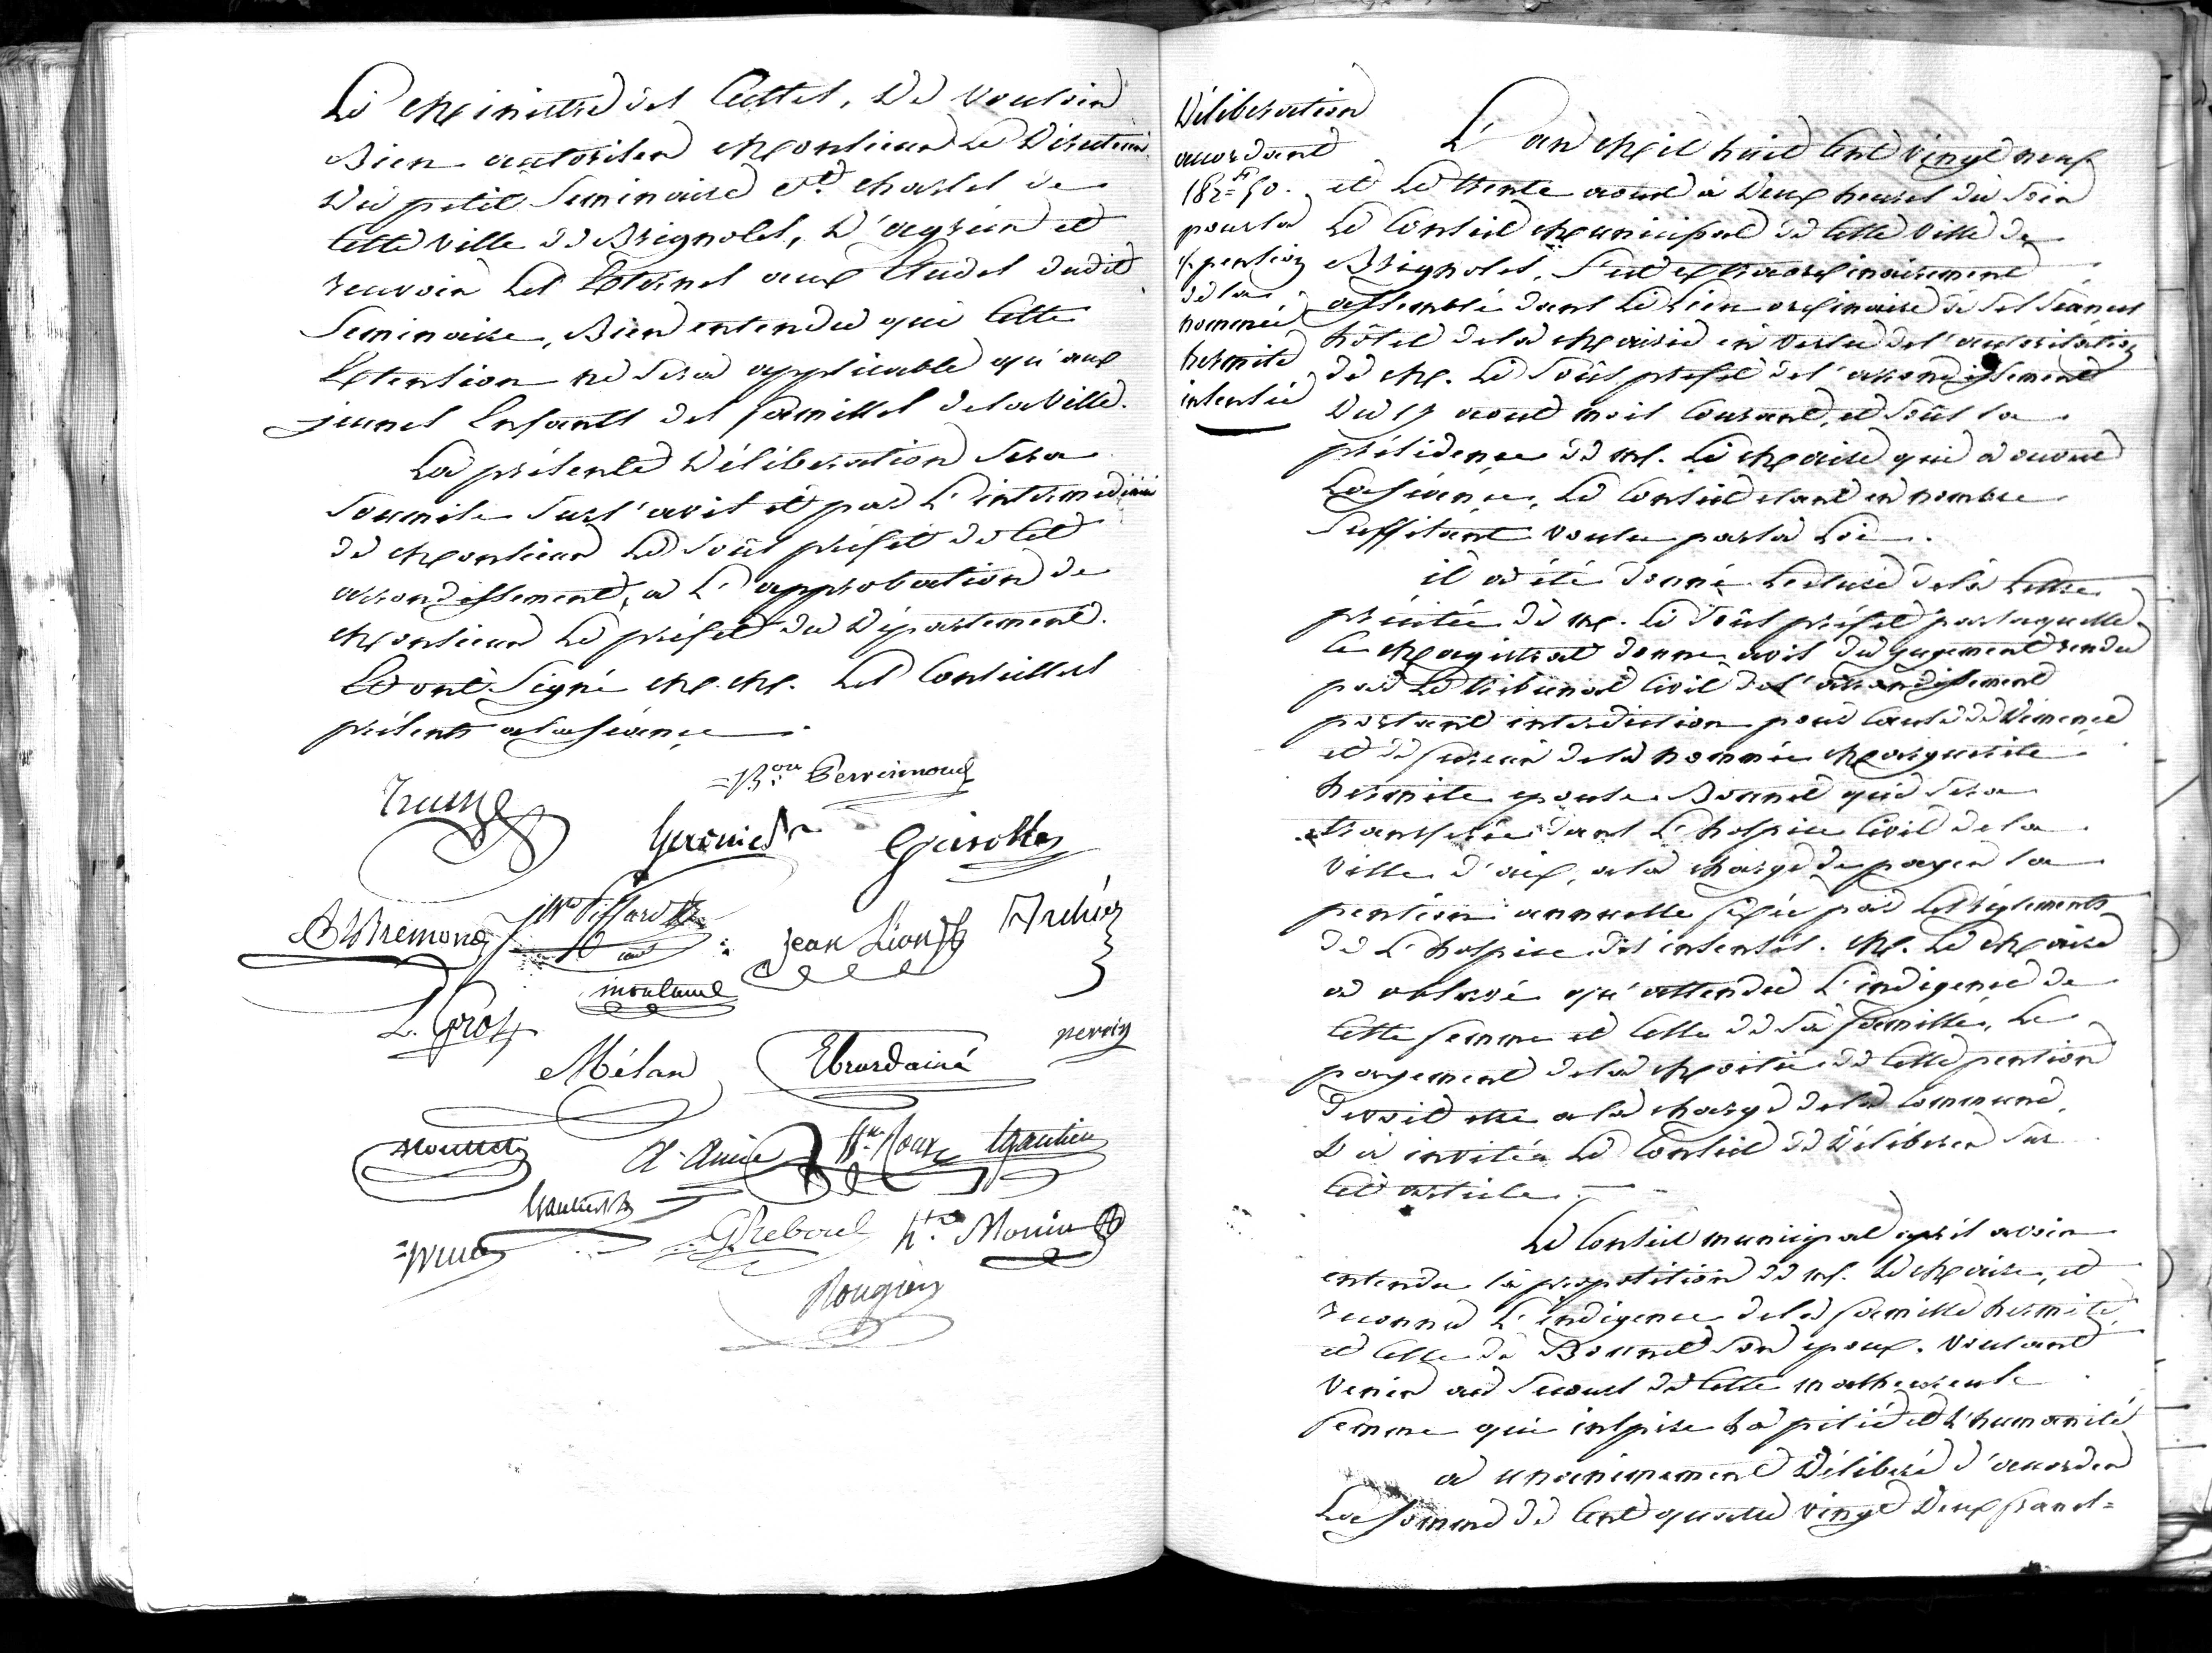 Le Ministre des Cultes, De vouloir
Bien autoriser Monsieur Le Directeur
Du petit Seminaire St. Charles de
Cette ville de Brignoles, D'agréer et
recevoir Les Externes aux Etudes dudit
Seminaire, Bien entendu que Cette
Extension ne sera applicable qu'aux
jeunes Enfants des familles de la Ville.
La présente Déliberation Sera
Soumise Sur l'avis et par L'intermediaire
de Monsieur Le Sous préfet de Cet
arrondissement, a L'approbation de
Monsieur Le préfet du Département.
Et ont Signé M. M. Les Conseillers
présents a la Séance
=Bon. Perreimond
Garnier
Guisolle
Jh. Piffard
Jean Lion
Archier
L. Gros
moulard
Mélan
Ebrard ainé
perrin
Mouttet
A. Amic
Roux
Gautier
Gautier
G Reboul
hte. Monier
Rougier
Déliberation
accordant
182f 50.
pour la
1/2 pension
de la
nommée
hermite
insensée
L'an Mil huit Cent vingt neuf
et Le trente aout à Deux heures du Soir
Le Conseil Municipal de Cette Ville de
Brignoles, S'est extraordinairement
assemblé dans Le Lieu ordinaire de Ses Séances
hôtel de la Mairie en vertu de l'autorisation
de M. Le Sous préfet de l'arrondissement
Du 17 aout mois Courant, et Sous la
présidence de M. Le Maire qui a ouvert
La Séance, Le Conseil etant en nombre
Suffisant voulu par la Loi.
il a été donné Lecture de la Lettre
précitée de M. Le Sous préfet par laquelle
Ce Magistrat donne avis du jugement rendu
par Le tribunal Civil de l'arrondissement
portant interdiction pour Cause de Démence
et de fureur de la nommée Marguerite
hermite epouse Bonnet qui Sera
transferée dans L'hospice Civil de la
Ville d'aix, a la charge de payer la
pension annuelle fixée par Les réglements
de L'hospice des insensés. M. Le Maire
a observé qu'attendu L'indigence de
Cette femme et Celle de Sa famille, Le
payement de la Moitié de Cette pension
devait etre a la charge de la Commune,
Et a invité Le Conseil de Déliberer Sur
Cet article.
Le Conseil municipal après avoir
entendu la proposition de M. Le Maire, et
reconnu L'indigence de la famille hermite,
et Celle de Bonnet Son epoux. voulant
Venir au Secours de Cette malheureuse
femme qui inspire La pitié et L'humanité
a unanimement Déliberé d'accorder
La Somme de Cent quatre vingt Deux francs=